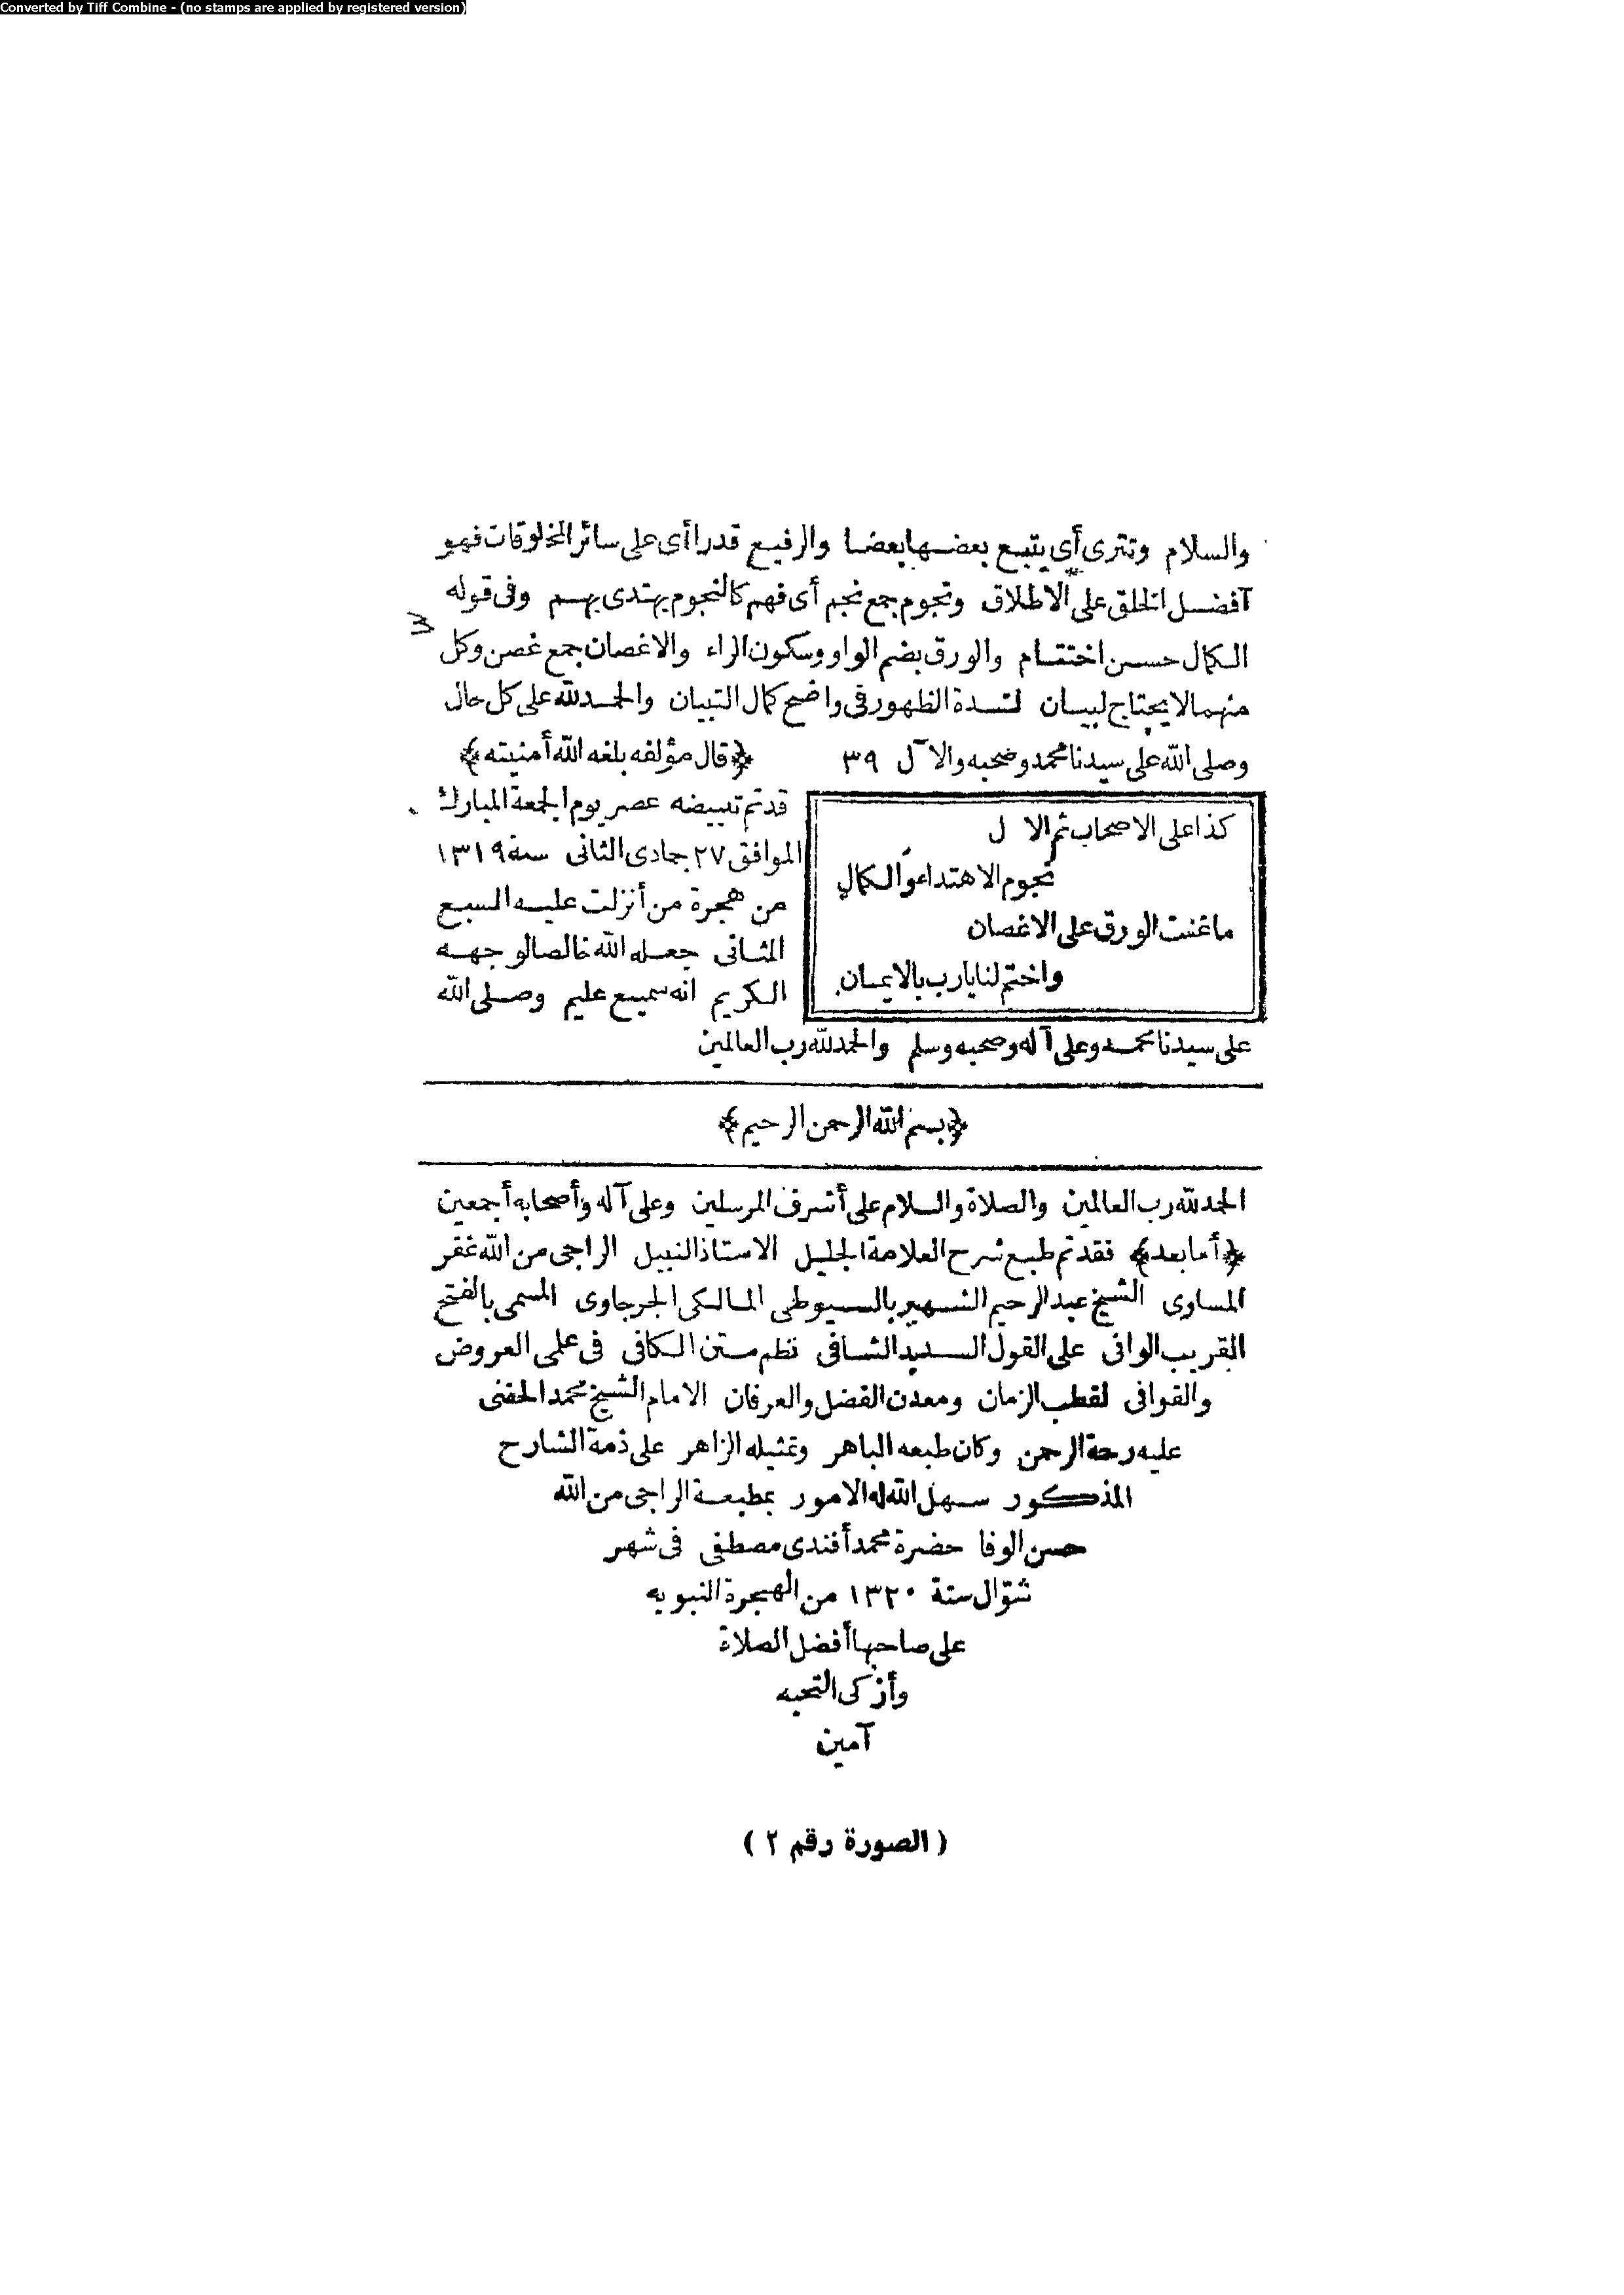 Converted by Tiff Combine - (no stamps are applied by registered version)
والسلام وتترى أي يتبع بعضها بعضا والرفيع قدرا أى على سائر المخلوقات فهو
أفضل الخلق على الاطلاق ونجوم جمع نجم أى فهم كالنجوم يهتدى بهم وفى قوله
الكمال حسن اختتام والورق بضم الواو وسكون الراء والاغصان جمع غصن وكل
منهما لا يحتاج لبيان لشدة الظهور فى واضح كمال التبيان والحمد لله على كل حال
وصلى الله على سيدنا محمد وصحبه والآل ٣٩ ﴿قال مؤلفه بلغه الله أمنيته﴾
كذا على الاصحاب ثم الآل
نجوم الاهتداء والكمال
ما غنت الورق على الاغصان
واختم لنا يارب بالايمان
قد تم تبييضه عصر يوم الجمعة المبارك
الموافق ٢٧ جمادى الثانى سنة ١٣١٩
من هجرة من أنزلت عليه السبع
المثانى جعله الله خالصا لوجهه
الكريم انه سميع عليم وصلى الله
على سيدنا محمد وعلى آله وصحبه وسلم والحمد لله رب العالمين
﴿بسم الله الرحمن الرحيم﴾
الحمد لله رب العالمين والصلاة والسلام على أشرف المرسلين وعلى آله وأصحابه أجمعين
﴿أما بعد﴾ فقد تم طبع شرح العلامة الجليل الاستاذ النبيل الراجى من الله غفر
المساوى الشيخ عبد الرحيم الشهير بالسيوطى المالكى الجرجاوى المسمى بالفتح
القريب الوافى على القول السديد الشافى نظم متن الكافى فى علمى العروض
والقوافى لقطب الزمان ومعدن الفضل والعرفان الامام الشيخ محمد الحفنى
عليه رحمة الرحمن وكان طبعه الباهر وتمثيله الزاهر على ذمة الشارح
المذكور سهل الله له الامور بمطبعة الراجى من الله
حسن الوفا حضرة محمد أفندى مصطفى فى شهر
شوّال سنة ١٣٢٠ من الهجرة النبويه
على صاحبها أفضل الصلاة
وأزكى التحيه
آمين
( الصورة رقم ٢ )